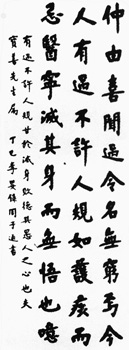 仲由喜聞過令名無窮焉今
人有過不許人規如護疾而
忌醫寧滅其身而無悟也噫
有過不許人規甘於滅身敗德其愚人之心也夫
寶善先生屬 丁巳季